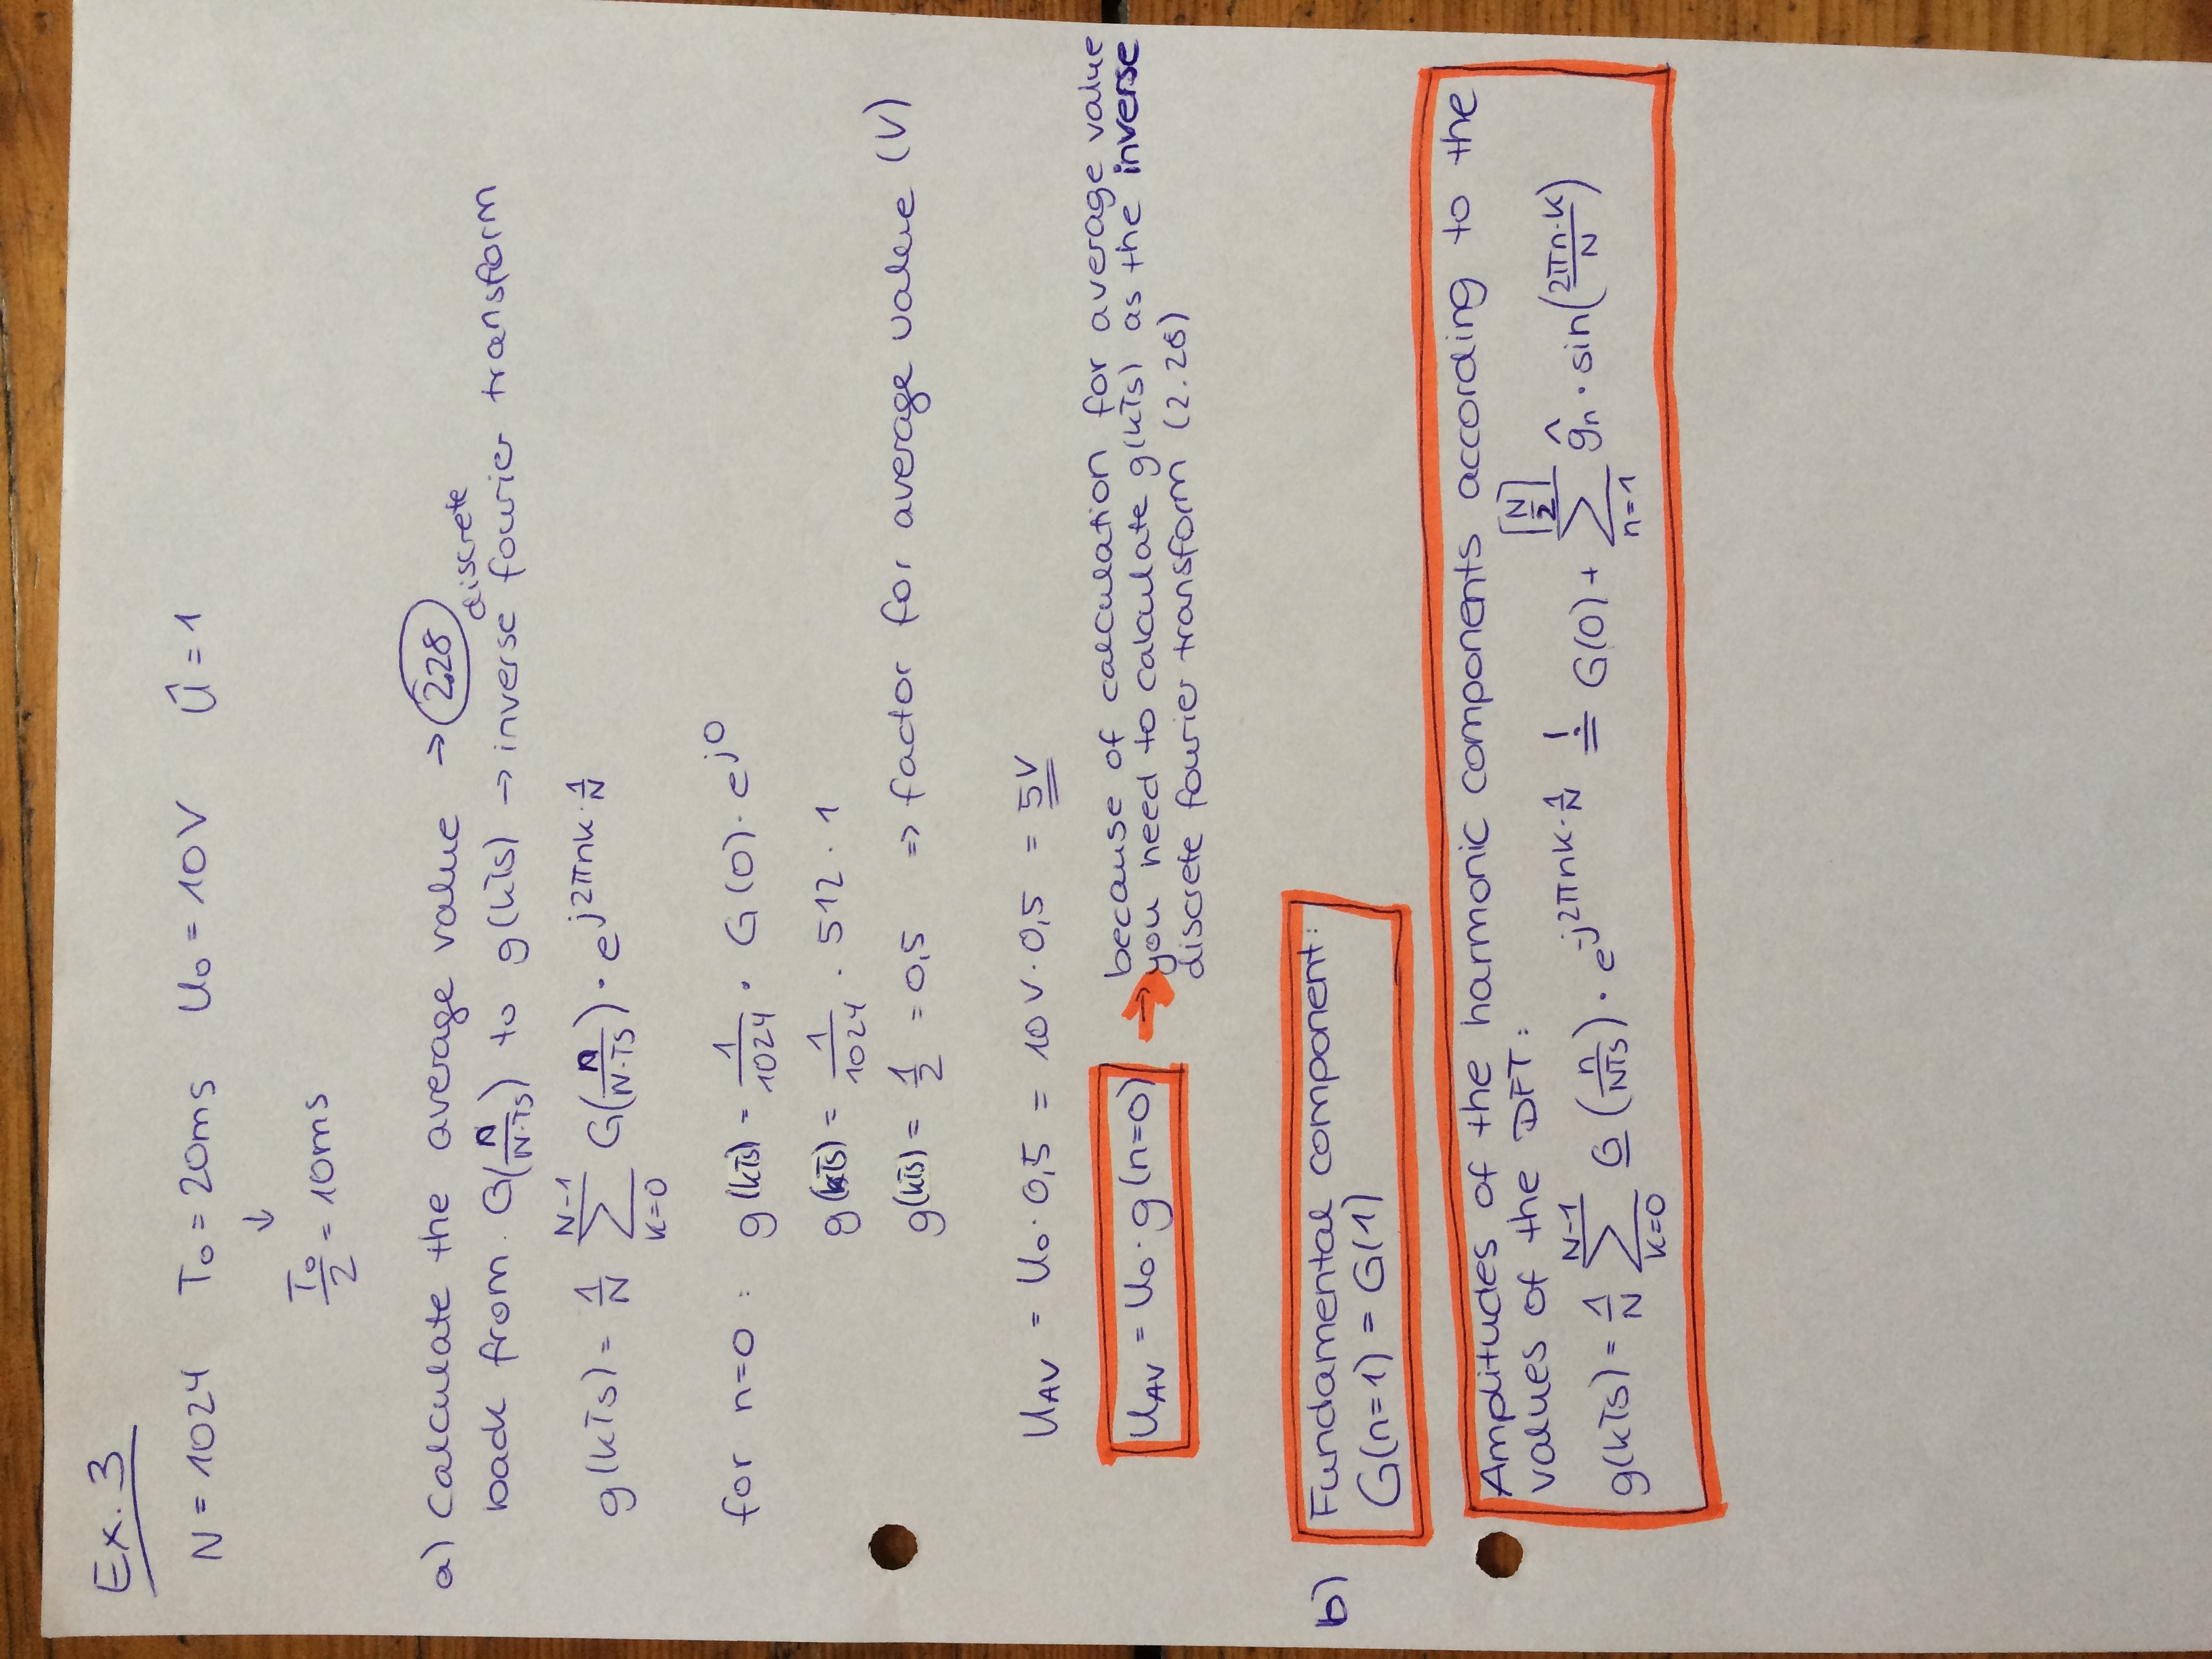 Ex. 3
N = 1024 T₀ = 20ms U₀ = 10V Û = 1
↓
T₀/2 = 10ms
a) Calculate the average value → 2.28
back from G(n/(N·Ts)) to g(kTs) → inverse discrete fourier transform
g(kTs) = 1/N ∑_{k=0}^{N-1} G(n/(N·Ts)) · e^{j2πnk·1/N}
for n=0 : g(kTs) = 1/1024 · G(0) · e^{j0}
g(kTs) = 1/1024 · 512 · 1
g(kTs) = 1/2 = 0,5 ⇒ factor for average value (V)
U_AV = U₀ · 0,5 = 10V · 0,5 = 5V
U_AV = U₀ · g(n=0) → because of calculation for average value
you need to calculate g(kTs) as the inverse
discrete fourier transform (2.28)
b) Fundamental component:
G(n=1) = G(1)
Amplitudes of the harmonic components according to the
values of the DFT:
g(kTs) = 1/N ∑_{k=0}^{N-1} G(n/(NTs)) · e^{-j2πnk·1/N} =! G(0) + ∑_{n=1}^{⌈N/2⌉} ĝn · sin(2πn·k/N)